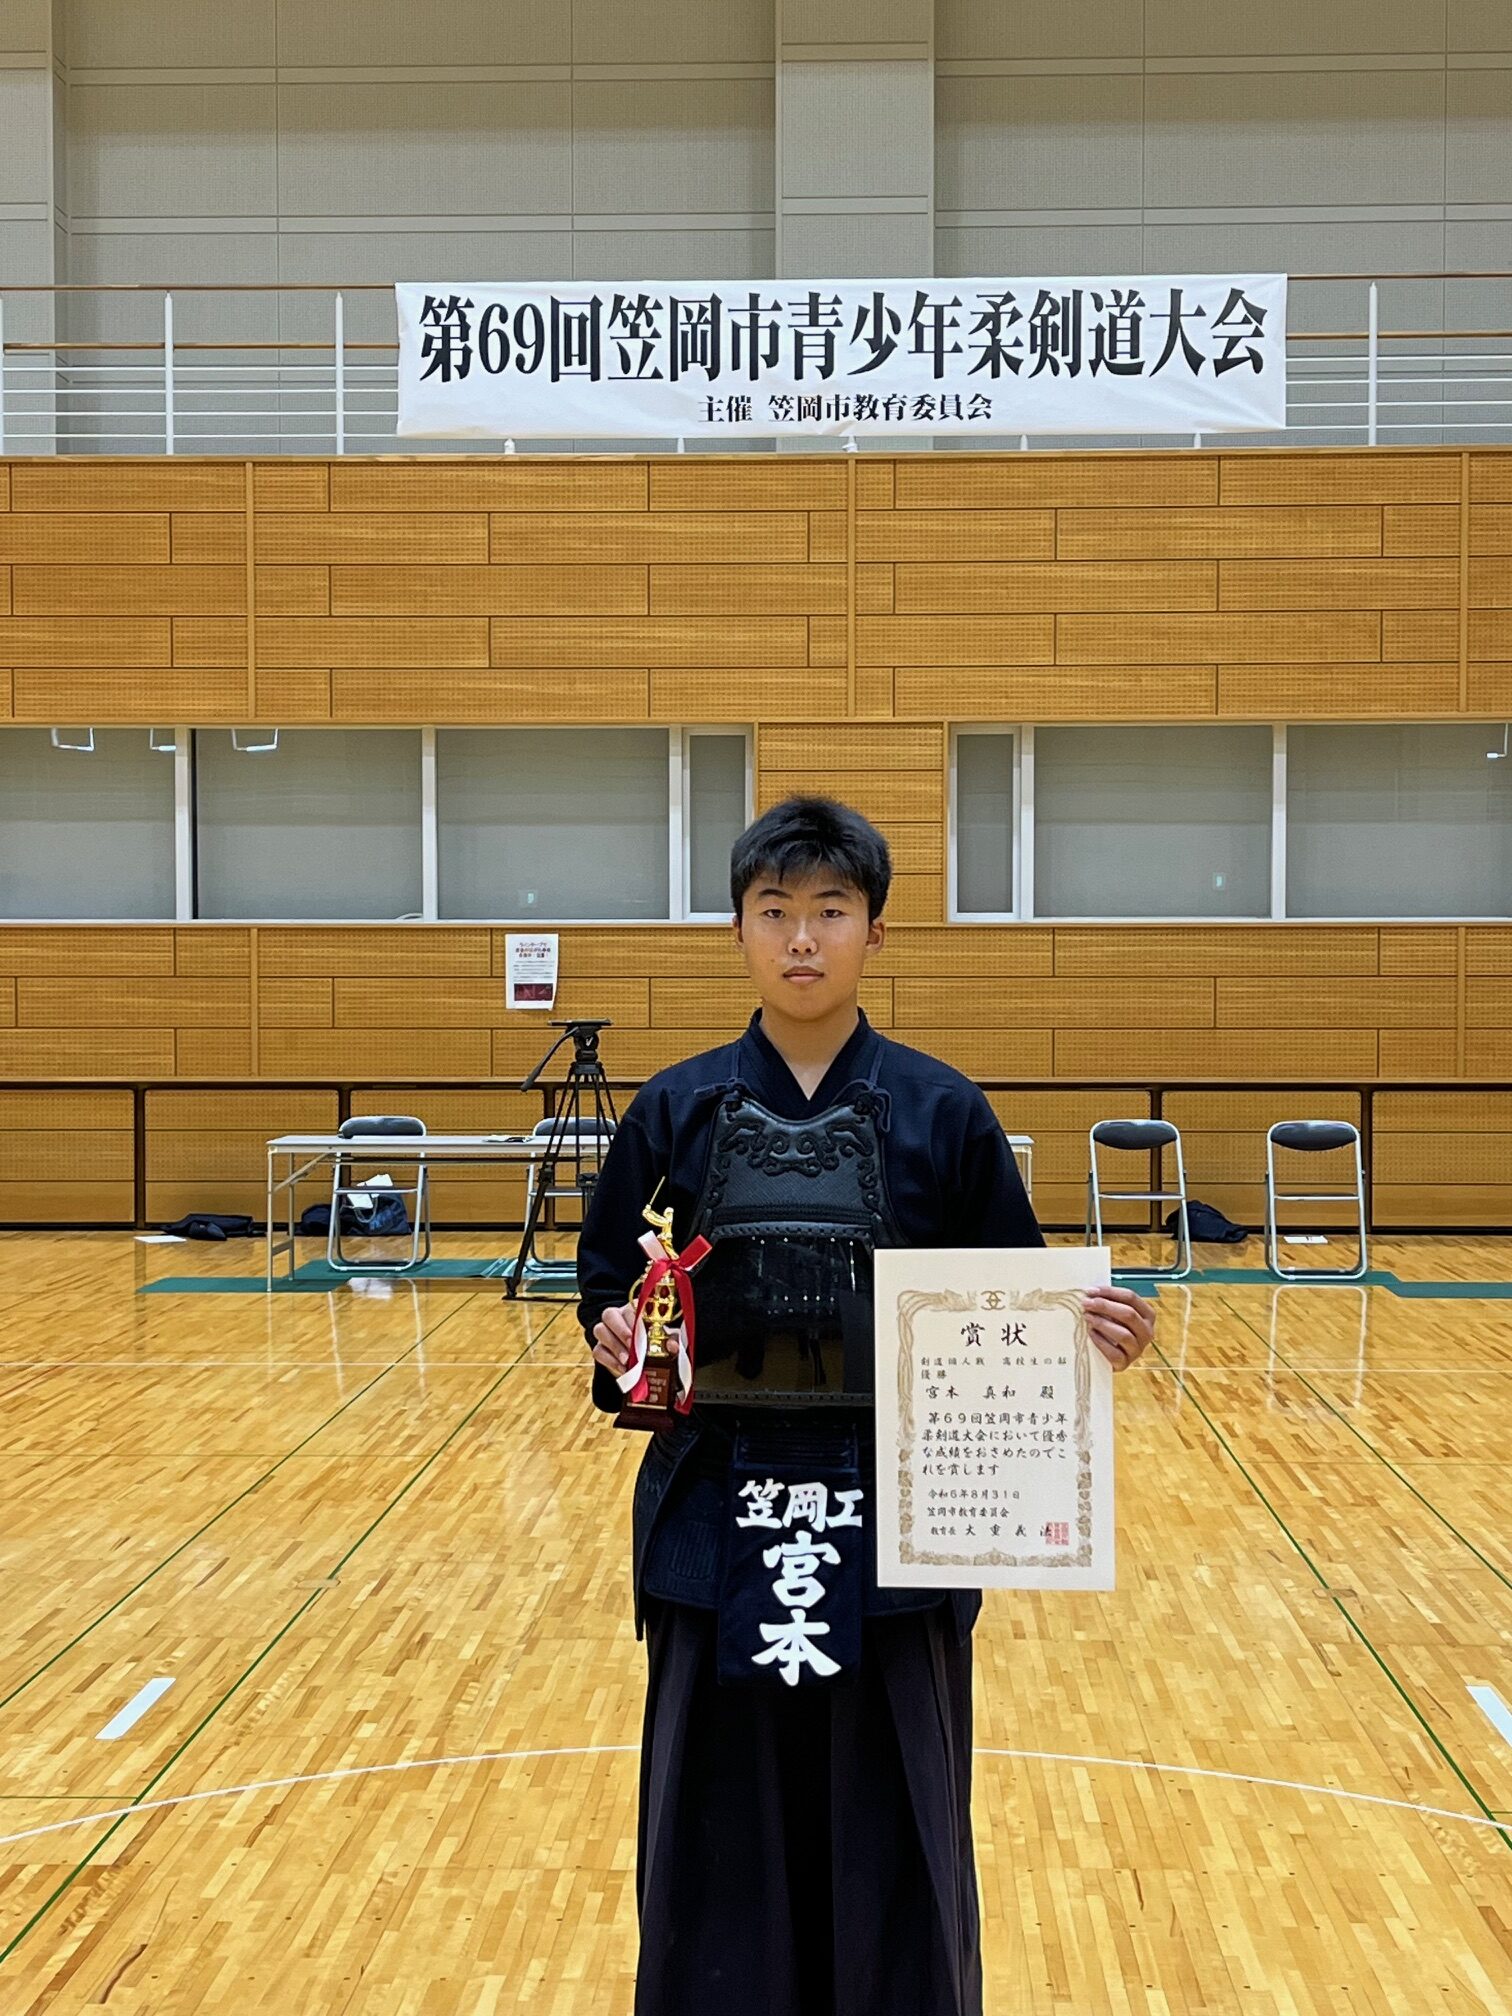 第69回笠岡市青少年柔剣道大会
主催 笠岡市教育委員会
賞状
剣道個人戦 高校生の部
優勝
宮本 真和 殿
第69回笠岡市青少年
柔剣道大会において優秀
な成績をおさめたのでこ
れを賞します
令和6年8月31日
笠岡市教育委員会
教育長 大重義法
笠岡工
宮本